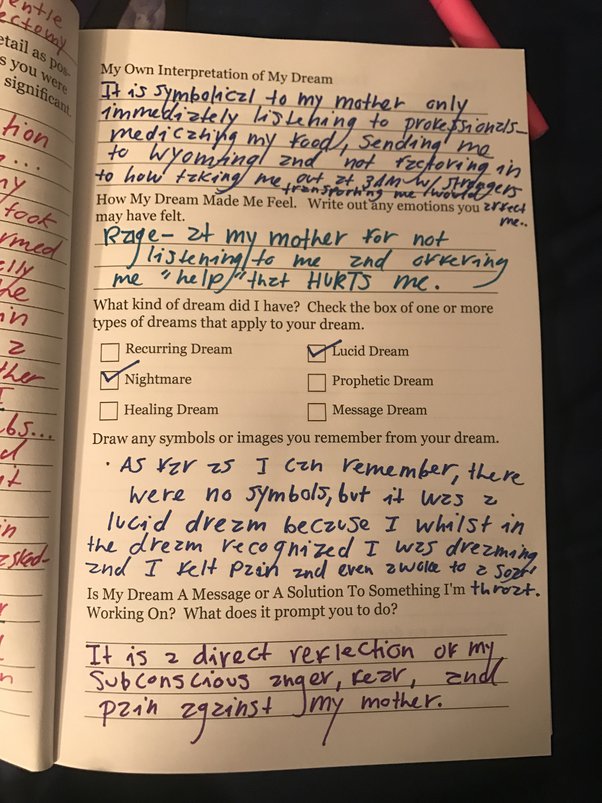 entle
ectomy
etail as pos-
s you were
significant.
tion
ny
took
rmed
elly
he
in
a
ther
I
bs...
d
it
in
asked-
r
n
My Own Interpretation of My Dream
It is symbolical to my mother only
immediately listening to professionals-
medicating my food, sending me
to Wyoming and not factoring in
to how taking me out at 3AM w/ strangers
transporting me would
How My Dream Made Me Feel. Write out any emotions you affect
may have felt. me..
Rage- at my mother for not
listening to me and offering
me "help" that HURTS me.
What kind of dream did I have? Check the box of one or more
types of dreams that apply to your dream.
Recurring Dream Lucid Dream
Nightmare Prophetic Dream
Healing Dream Message Dream
Draw any symbols or images you remember from your dream.
· As far as I can remember, there
were no symbols, but it was a
lucid dream because I whilst in
the dream recognized I was dreaming
and I felt pain and even awoke to a sore
Is My Dream A Message or A Solution To Something I'm throat.
Working On? What does it prompt you to do?
It is a direct reflection of my
subconscious anger, fear, and
pain against my mother.